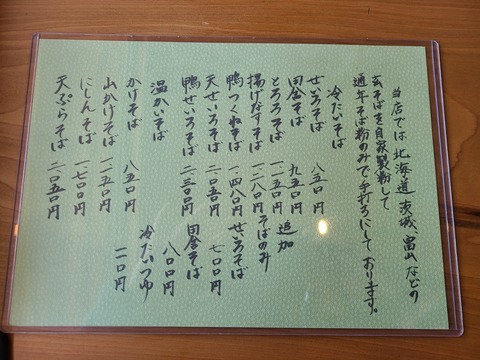 当店では 北海道 茨城、富山などの
玄そばを自家製粉して
通年そば粉のみで手打ちにしております。
冷たいそば
せいろそば 八五〇円
田舎そば 九五〇円
とろろそば 一、一五〇円
揚げなすそば 一、二八〇円
鴨つくねそば 一、四八〇円
天せいろそば 二、〇五〇円
鴨せいろそば 二、三〇〇円
追加
そばのみ
せいろそば 七〇〇円
田舎そば 八〇〇円
冷たいつゆ
温かいそば
かけそば 八五〇円
山かけそば
にしんそば 一、七〇〇円
天ぷらそば 二、〇五〇円